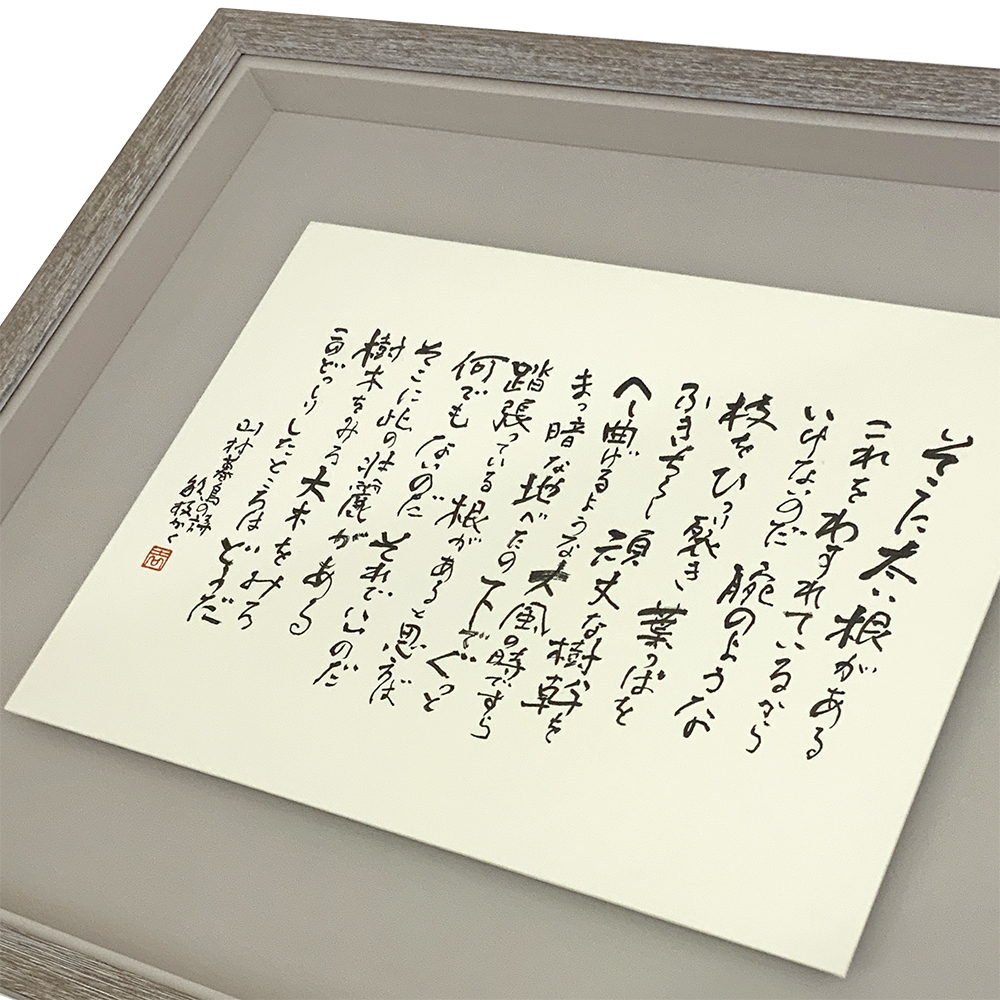 そこに太い根がある
これをわすれているから
いけないのだ 腕のような
枝をひっ裂き 葉っぱを
ふきちらし 頑丈な樹幹を
へし曲げるような大風の時ですら
まっ暗な地べたの下でぐっと
踏張っている根があると思えば
何でもないのだ それでいいのだ
そこに此の壮麗がある
樹木をみろ 大木をみろ
このどっしりしたところは どうだ
山村暮鳥の詩
かく